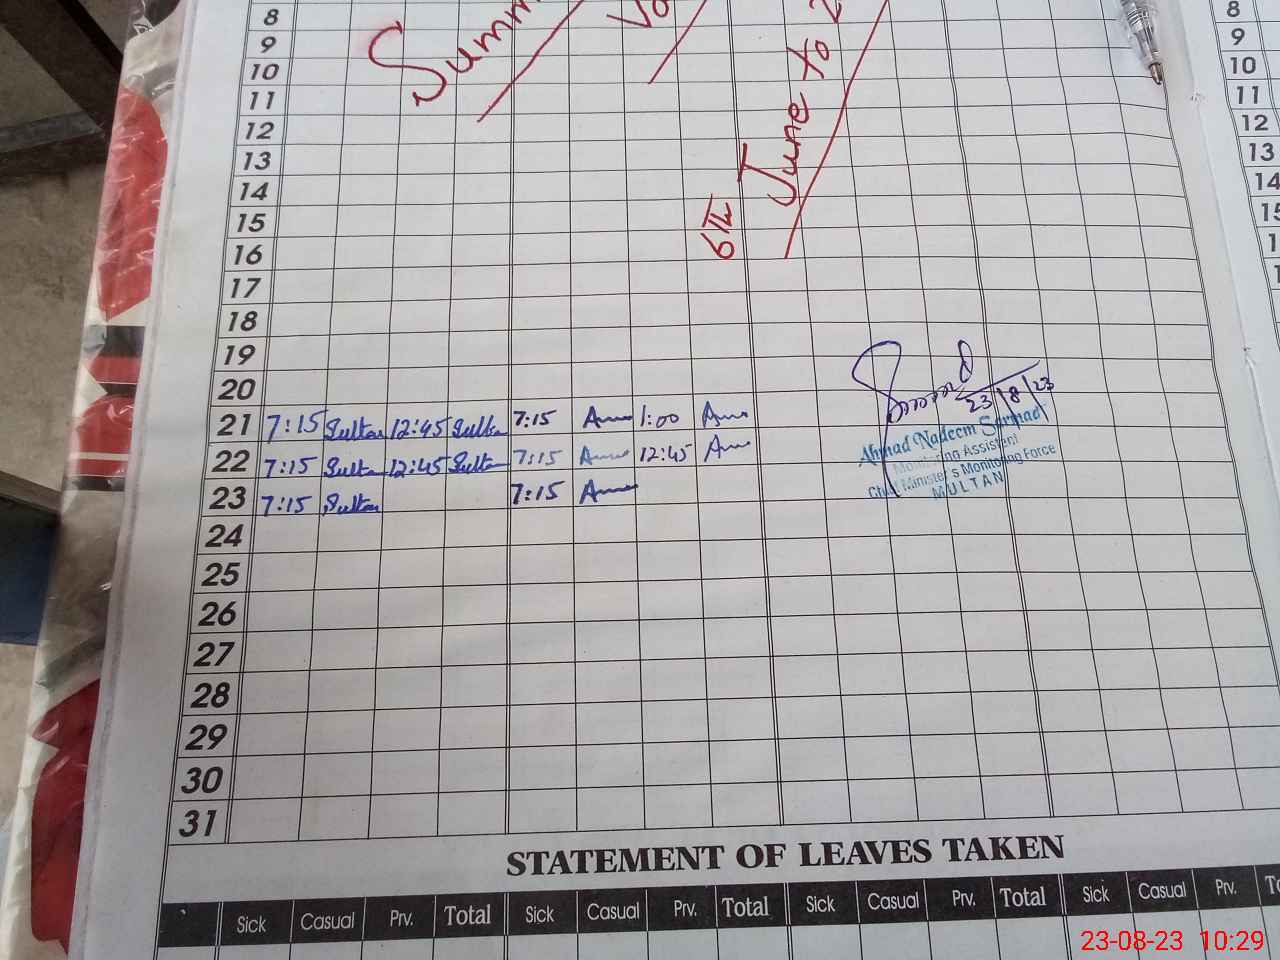 8
9
10
11
12
13
14
15
16
17
18
19
20
21 7:15 Sultan 12:45 Sultan 7:15 1:00
22 7:15 Sultan 12:45 Sultan 7:15 12:45
23 7:15 Sultan 7:15
24
25
26
27
28
29
30
31
6th June to
23/8/23
Ahmad Nadeem Sarhad
Monitoring Assistant
Chief Minister's Monitoring Force
MULTAN
8
9
10
11
12
13
14
STATEMENT OF LEAVES TAKEN
Sick Casual Prv. Total Sick Casual Prv. Total Sick Casual Prv. Total Sick Casual Prv.
23-08-23 10:29